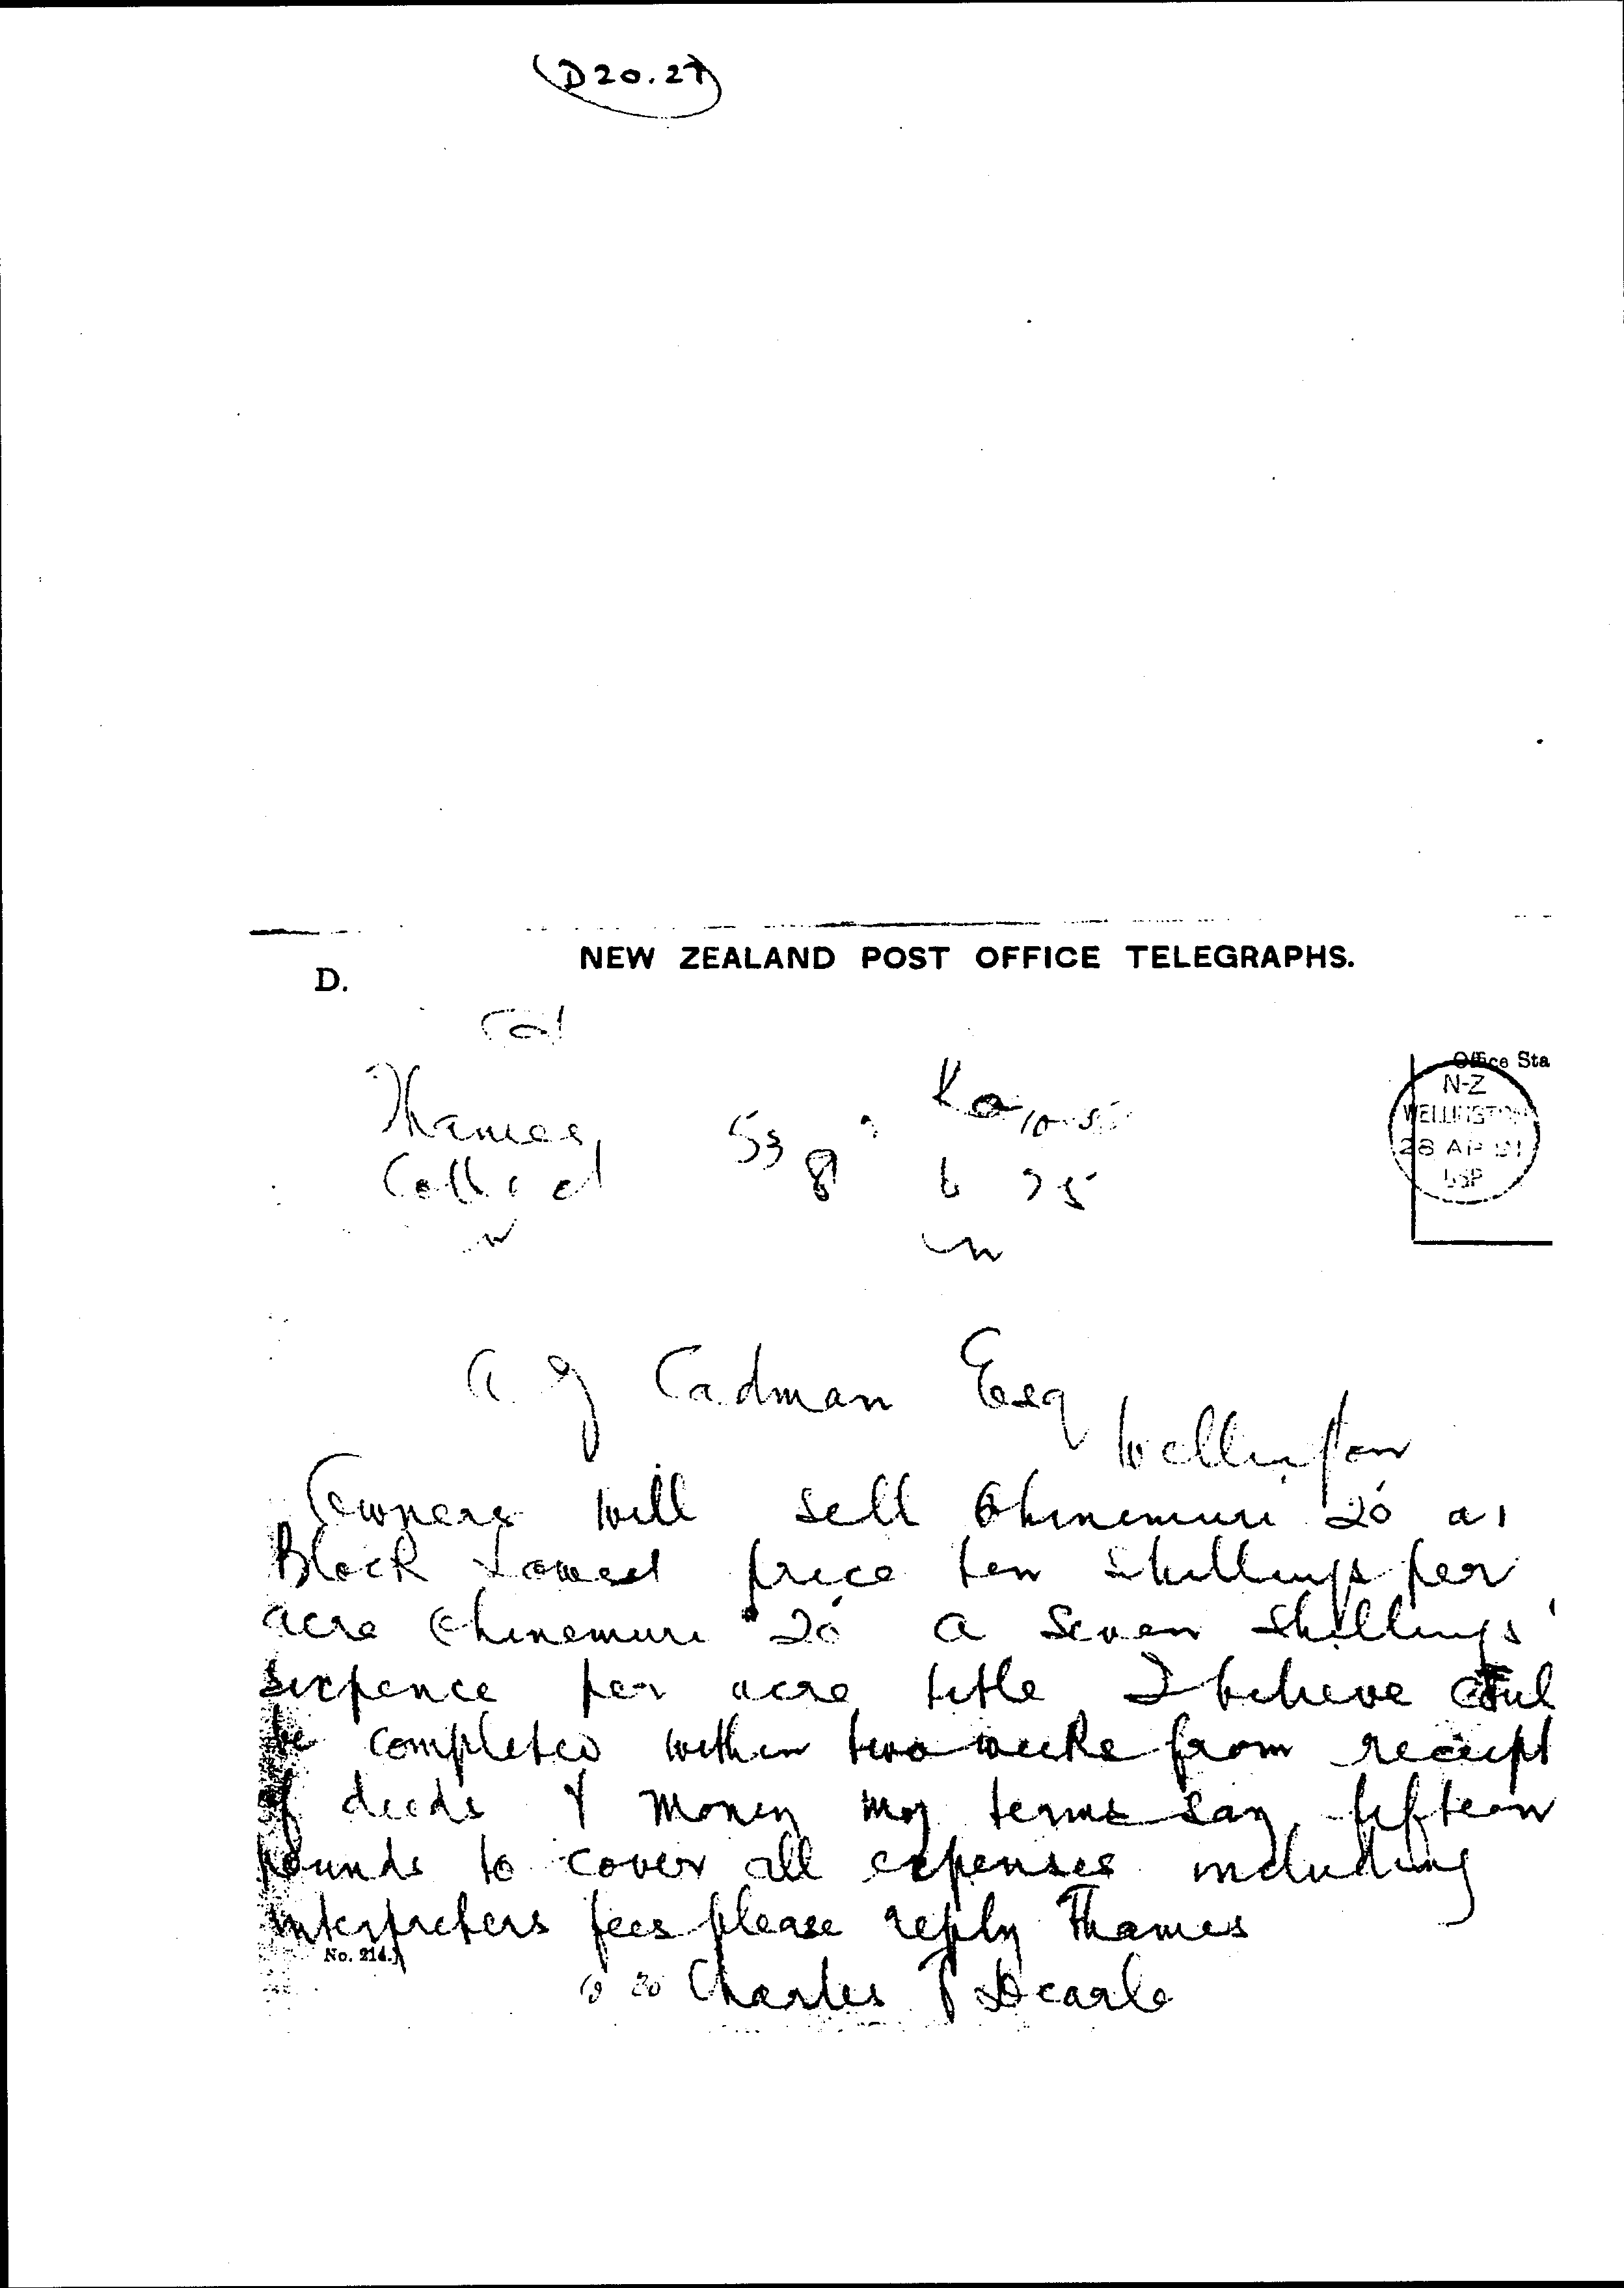 D20.27
NEW ZEALAND POST OFFICE TELEGRAPHS.
D.
Office Sta
N-Z
WELLINGTON
28 AP 91
Thames 53 Ka 10.5
8 6 75
A J Cadman Esq
Wellington
Owners will sell Ohinemuri 20 as
Block Lowest price ten shillings per
acre Ohinemuri 20 a seven shillings
sixpence per acre title I believe
be completed within two weeks from receipt
of deeds & money my terms say fifteen
pounds to cover all expenses including
interpreters fees please reply Thames
No. 214.
Charles J Dearle